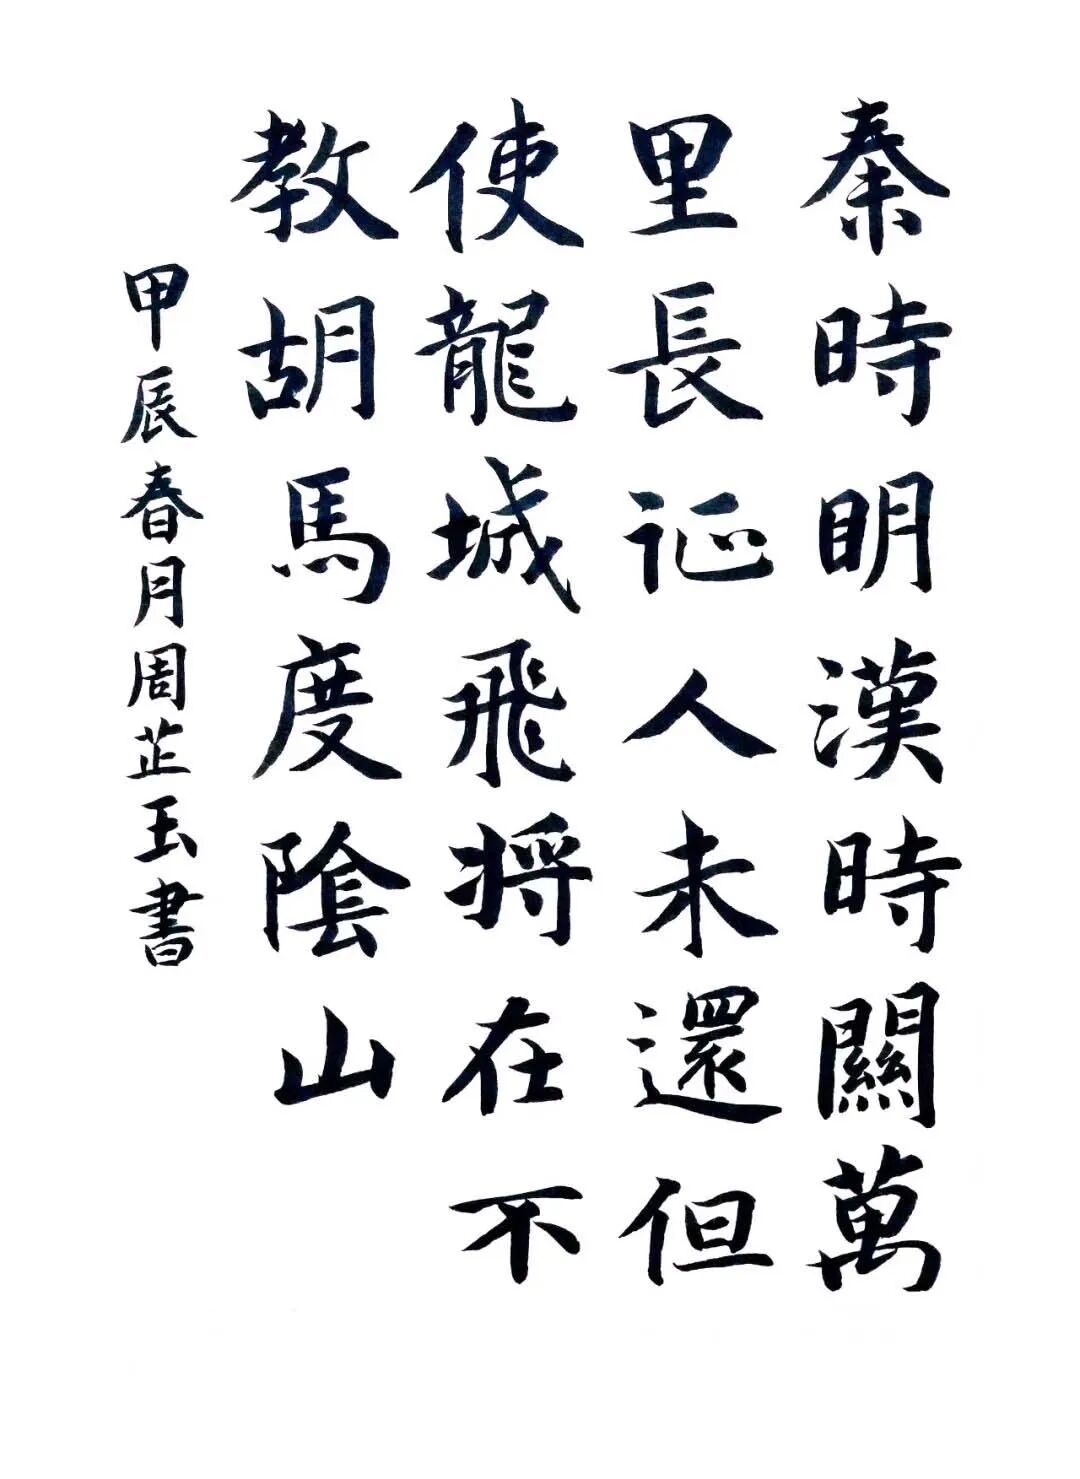 秦時明漢時關萬
里長征人未還但
使龍城飛将在不
教胡馬度陰山
甲辰春月周芷玉書